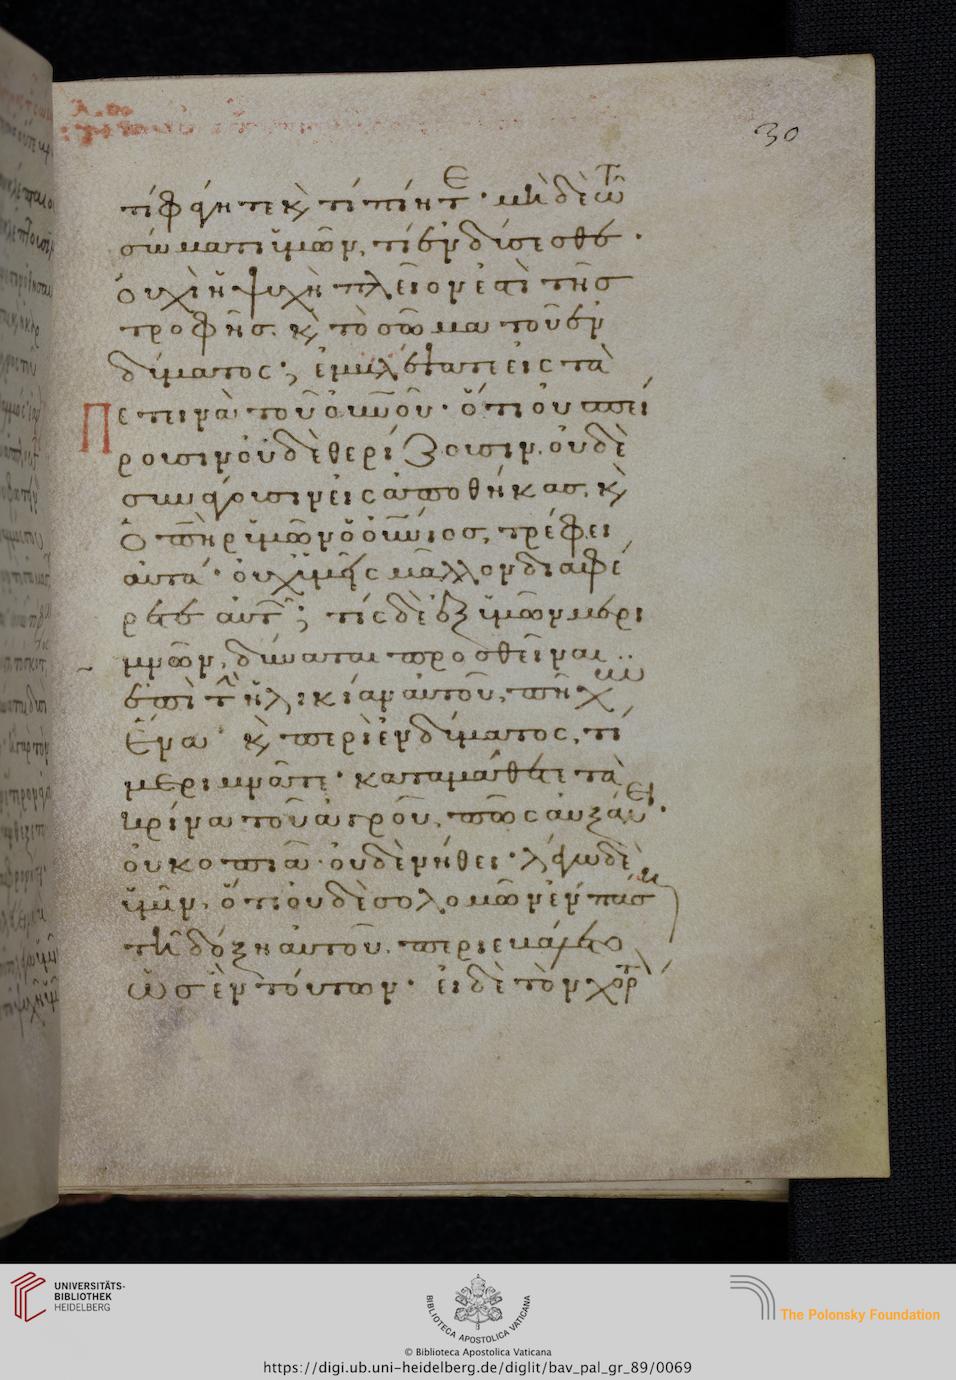 30
τί φάγητε κ τί πίητε· μὴ δὲ τῶ
σώματι ὑμῶν, τί ἐνδύσεσθε·
οὐχὶ ἡ ψυχὴ πλεῖον ἐστὶ τῆς
τροφῆς. κ τὸ σῶμα τοῦ ἐν
δύματος; ἐμβλέψατε εἰς τὰ
Πετεινὰ τοῦ οὐνοῦ· ὅτι οὐ σπεί
ρουσιν οὐδὲ θερίζουσιν. οὐδὲ
συνάγουσιν εἰς ἀποθήκας. κ
ὁ πὴρ ὑμῶν ὁ οὐνιος, τρέφει
αὐτά· οὐχ ὑμεῖς μᾶλλον διαφέ
ρετε αὐτῶν; τίς δὲ ἐξ ὑμῶν μερι
μνῶν, δύναται προσθεῖναι
ἐπὶ τὴν ἡλικίαν αὐτοῦ, πῆχυν
ἕνα· κ περὶ ἐνδύματος, τί
μεριμνᾶτε· καταμάθετε τὰ
κρίνα τοῦ ἀγροῦ, πῶς αὐξάνει·
οὐ κοπιᾶ· οὐδὲ νήθει· λέγω δὲ
ὑμῖν, ὅτι οὐδὲ σολομῶν ἐν πάσῃ
τῇ δόξῃ αὐτοῦ. περιεβάλετο
ὡς ἓν τούτων· εἰ δὲ τὸν χόρτ
UNIVERSITÄTS-
BIBLIOTHEK
HEIDELBERG
BIBLIOTECA APOSTOLICA VATICANA
The Polonsky Foundation
© Biblioteca Apostolica Vaticana
https://digi.ub.uni-heidelberg.de/diglit/bav_pal_gr_89/0069